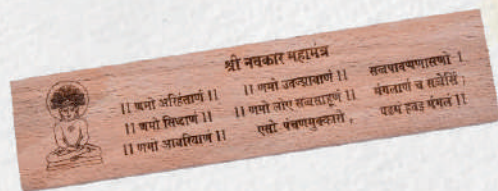 श्री नवकार महामंत्र
।। णमो अरिहंताणं ।।
।। णमो सिद्धाणं ।।
।। णमो आयरियाणं ।।
।। णमो उवज्झायाणं ।।
।। णमो लोए सव्वसाहूणं ।।
एसो पंचणमुक्कारो,
सव्वपावप्पणासणो ।
मंगलाणं च सव्वेसिं,
पढमं हवइ मंगलं ।।